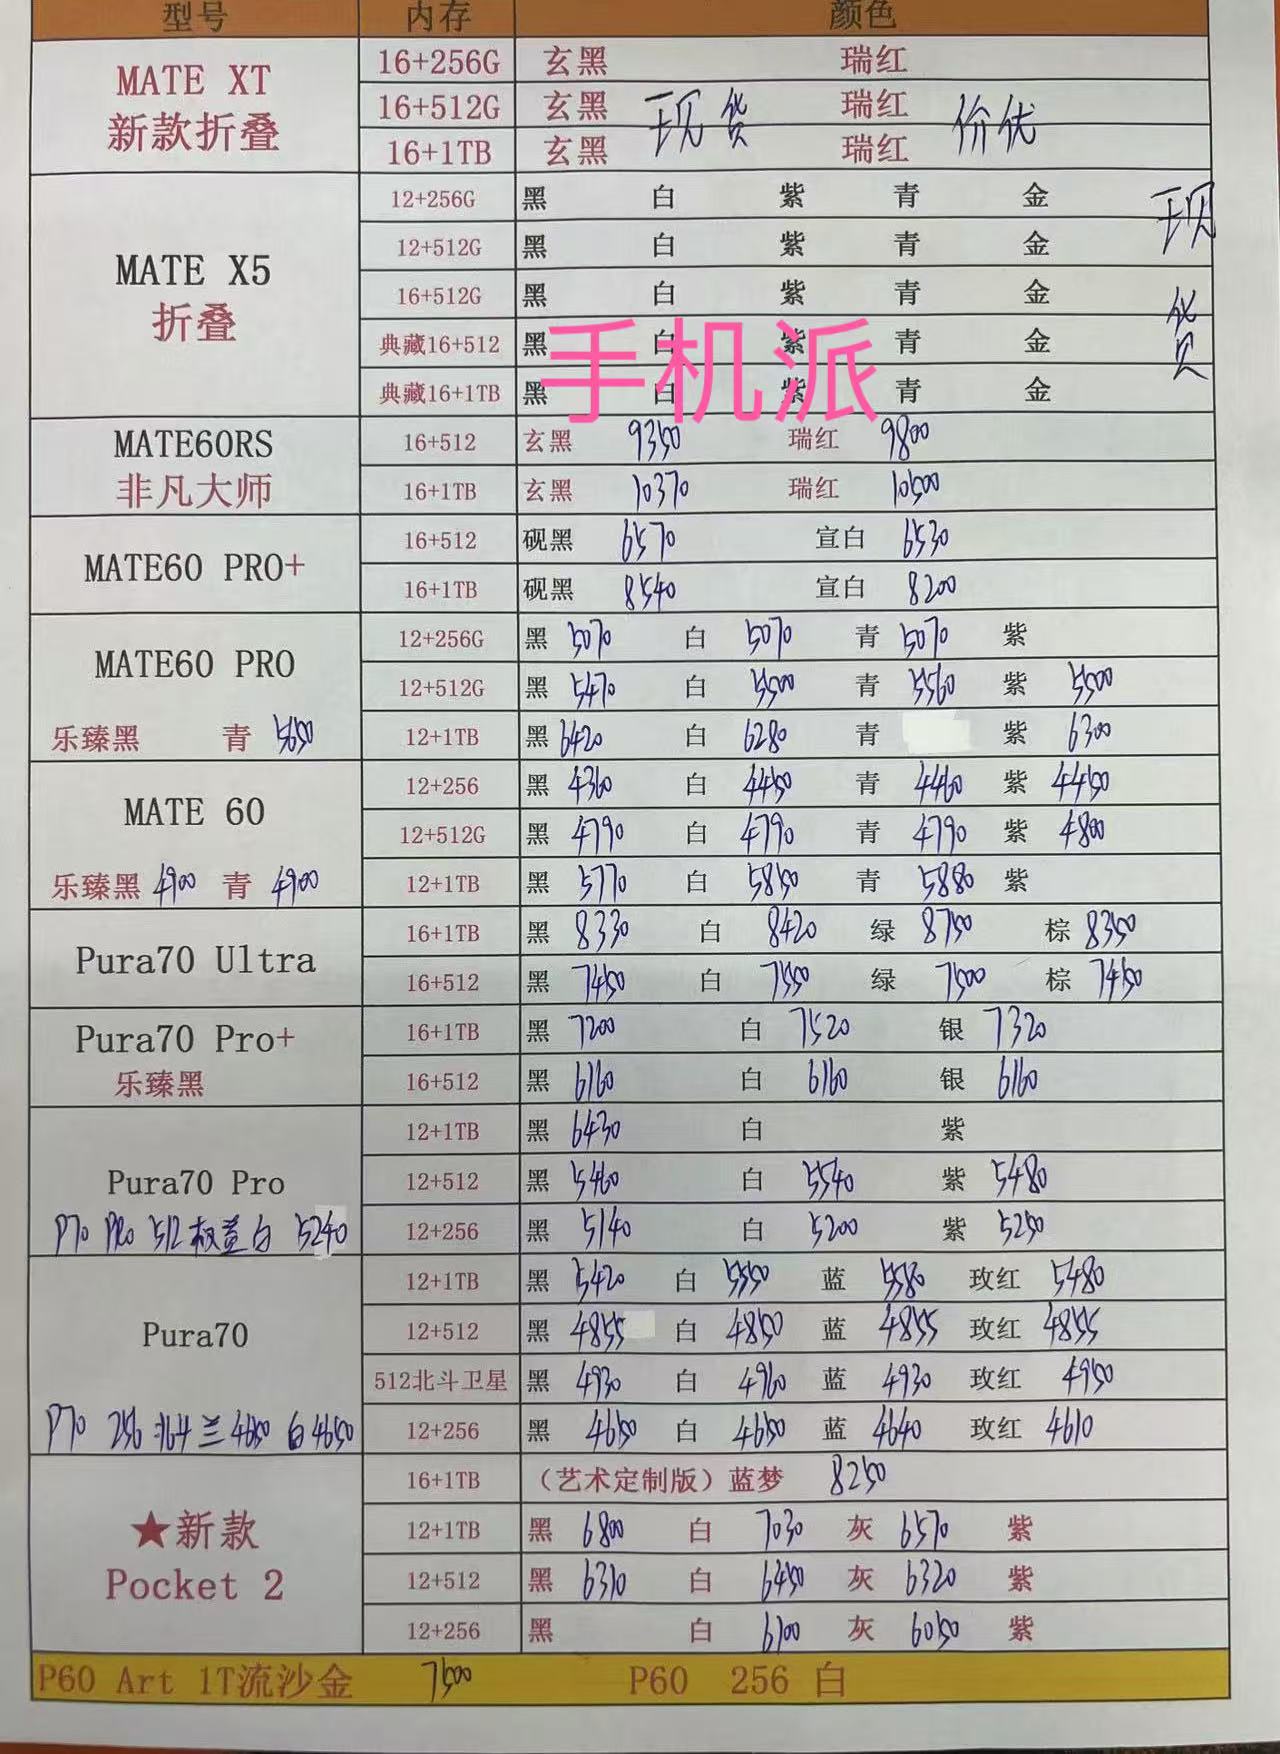 型号 内存 颜色
MATE XT 新款折叠
16+256G 玄黑 瑞红
16+512G 玄黑 现货 瑞红 价优
16+1TB 玄黑 瑞红
MATE X5 折叠 现货
12+256G 黑 白 紫 青 金
12+512G 黑 白 紫 青 金
16+512G 黑 白 紫 青 金
典藏16+512 黑 白 紫 青 金
手机派
典藏16+1TB 黑 白 紫 青 金
MATE60RS 非凡大师
16+512 玄黑 9350 瑞红 9800
16+1TB 玄黑 10370 瑞红 10500
MATE60 PRO+
16+512 砚黑 6570 宣白 6530
16+1TB 砚黑 8540 宣白 8200
MATE60 PRO
12+256G 黑 5070 白 5070 青 5070 紫
12+512G 黑 5470 白 5500 青 5560 紫 5500
乐臻黑 青 5650
12+1TB 黑 6420 白 6280 青 紫 6300
MATE 60
12+256 黑 4360 白 4450 青 4460 紫 4450
12+512G 黑 4790 白 4790 青 4790 紫 4800
乐臻黑 4900 青 4900
12+1TB 黑 5770 白 5850 青 5880 紫
Pura70 Ultra
16+1TB 黑 8330 白 8420 绿 8750 棕 8350
16+512 黑 7450 白 7550 绿 7500 棕 7450
Pura70 Pro+
乐臻黑
16+1TB 黑 7200 白 7520 银 7320
16+512 黑 6160 白 6160 银 6160
Pura70 Pro
12+1TB 黑 6430 白 紫
12+512 黑 5460 白 5540 紫 5480
P70 PRO 512 白 5240
12+256 黑 5140 白 5200 紫 5250
Pura70
12+1TB 黑 5420 白 5550 蓝 5580 玫红 5480
12+512 黑 4855 白 4850 蓝 4855 玫红 4855
512北斗卫星 黑 4930 白 4960 蓝 4930 玫红 4950
P70 256 北斗 兰 4650 白 4650
12+256 黑 4650 白 4650 蓝 4640 玫红 4610
★新款
Pocket 2
16+1TB （艺术定制版）蓝梦 8250
12+1TB 黑 6800 白 7030 灰 6570 紫
12+512 黑 6310 白 6450 灰 6320 紫
12+256 黑 白 6100 灰 6050 紫
P60 Art 1T流沙金 7500 P60 256 白